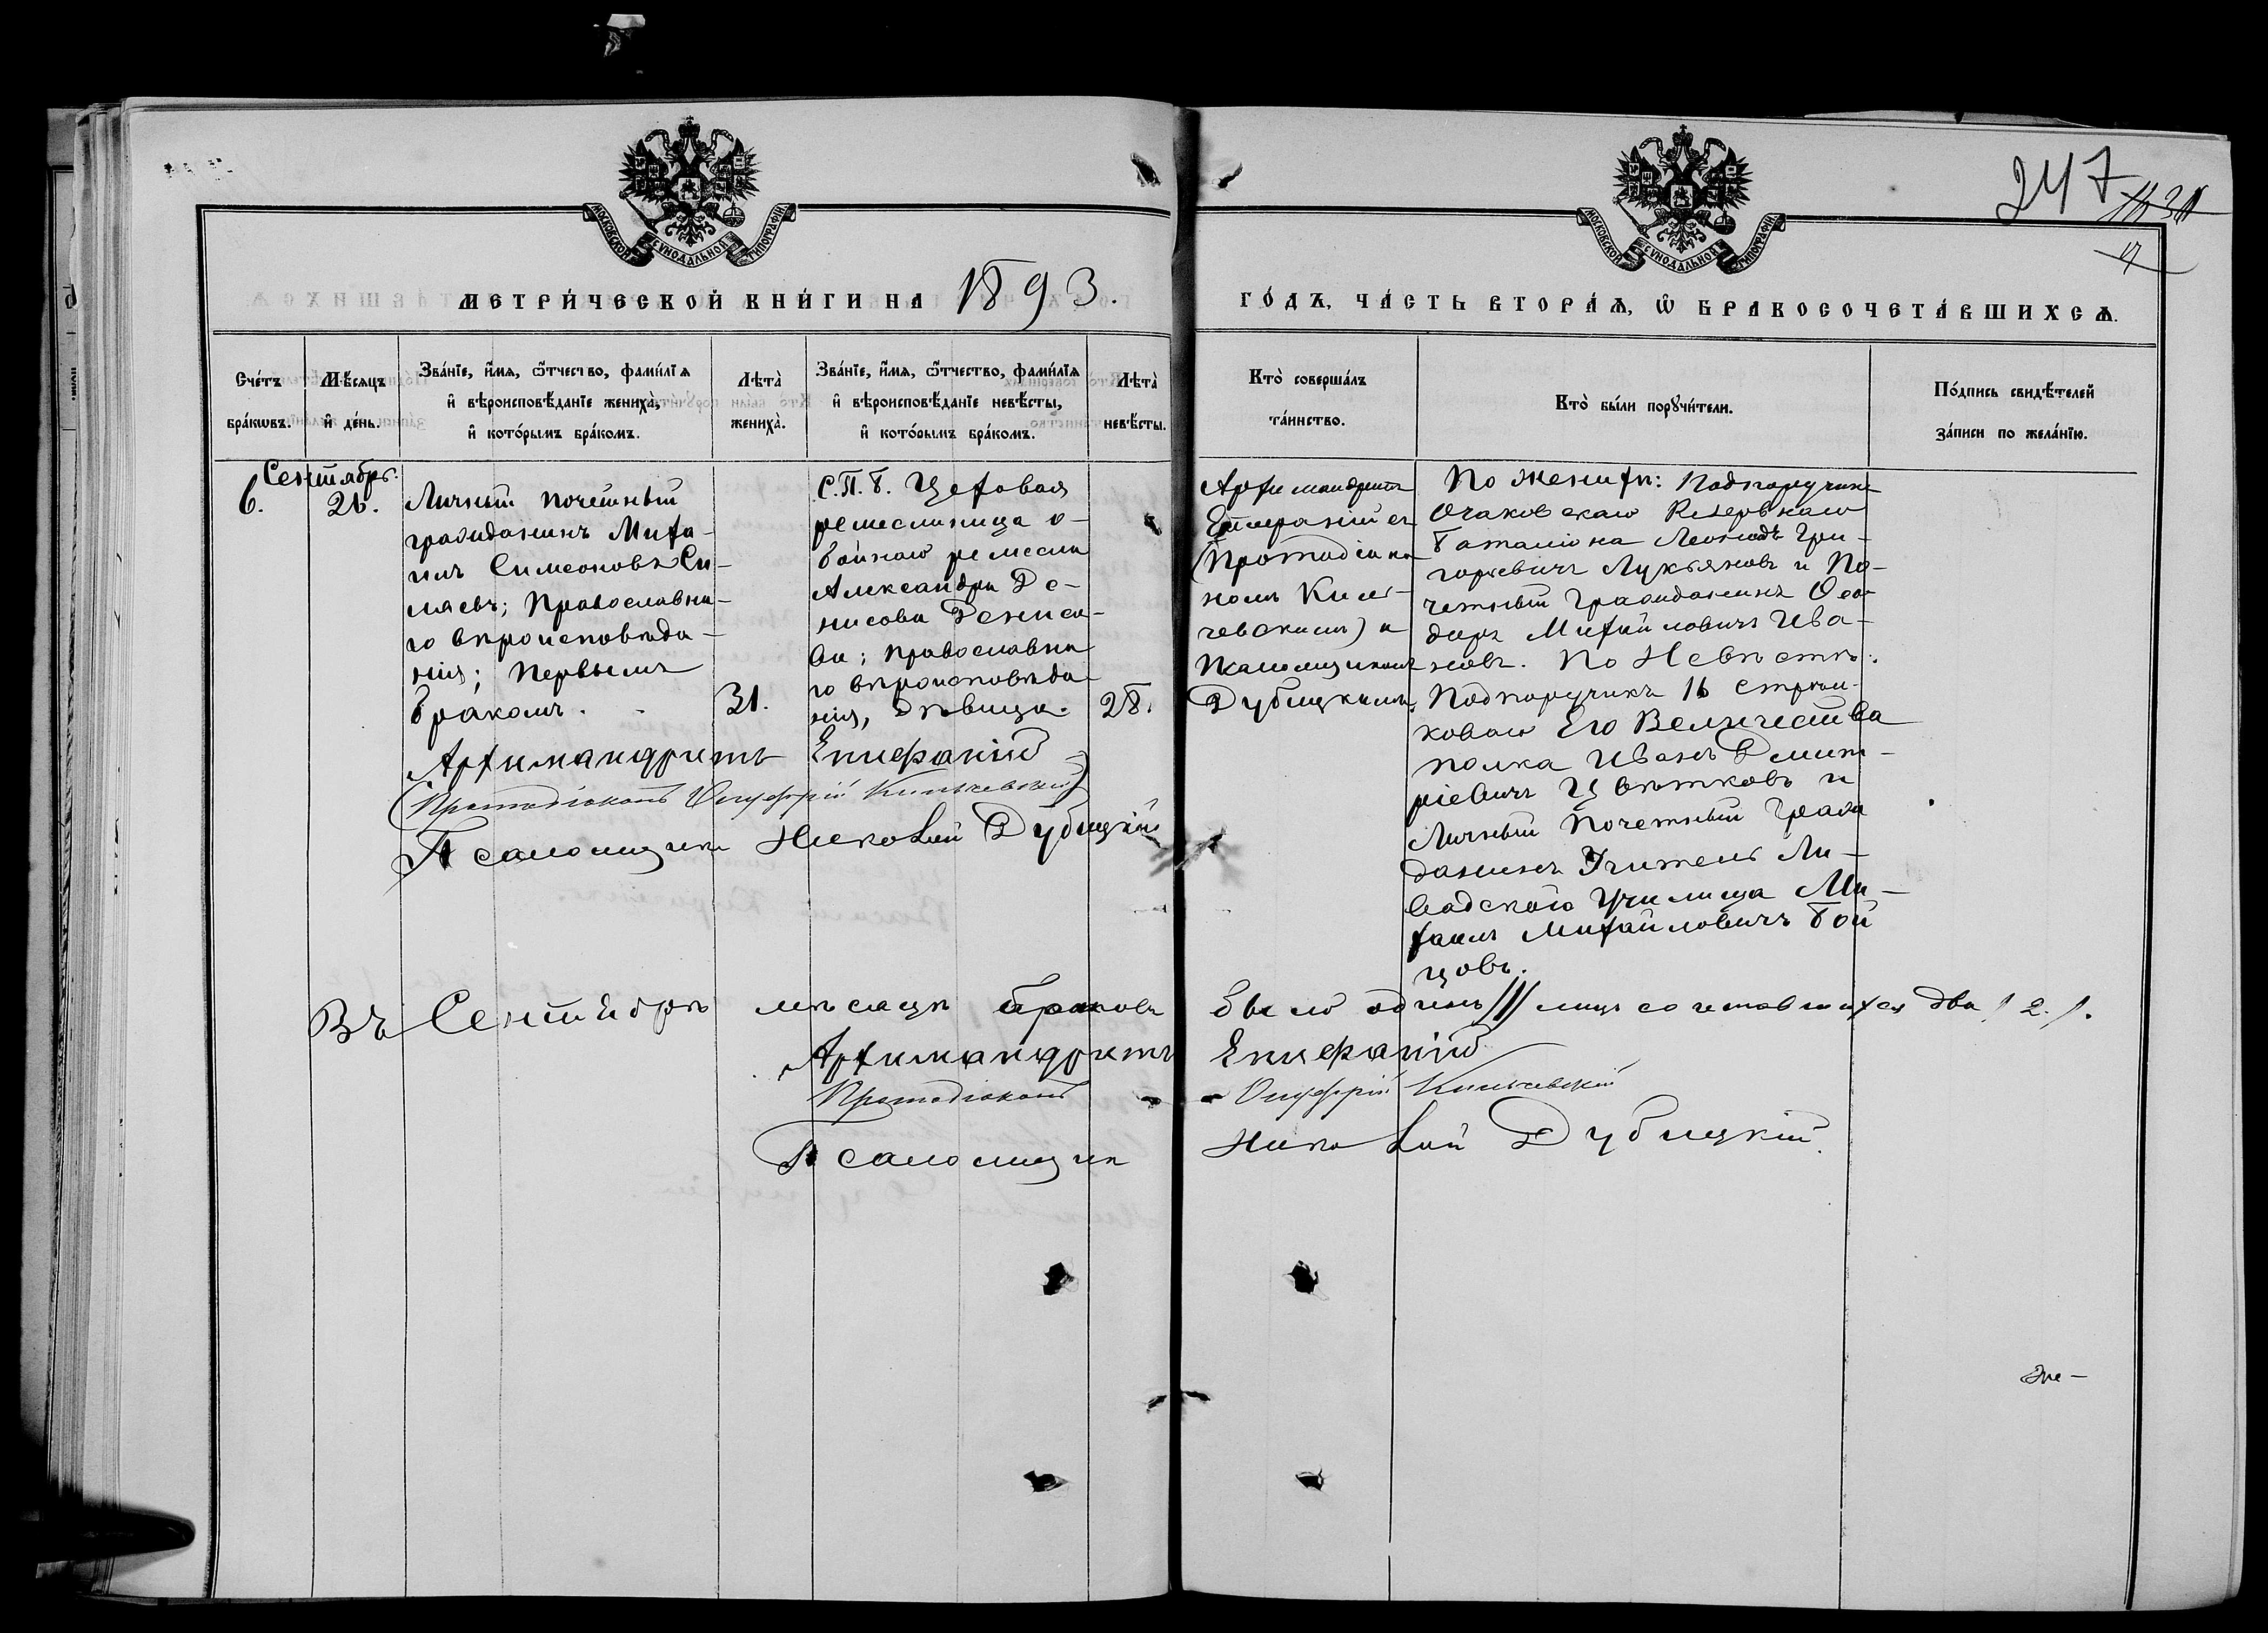 247
МОСКОВСКОЙ СѴНОДАЛЬНОЙ ТИПОГРАФІИ
МОСКОВСКОЙ СѴНОДАЛЬНОЙ ТИПОГРАФІИ
МЕТРИ́ЧЕСКОЙ КНИ́ГИ НА 1893.
ГО́ДЪ, ЧА́СТЬ ВТОРА́Ѧ, Ѡ҆ БРАКОСОЧЕТА́ВШИХСѦ.
Счéтъ
брáкѡвъ.
Мѣ́сяцъ
и҆ дéнь.
Звáнїе, и҆́мя, ѻ҆́тчество, фами́лїя
и҆ вѣроисповѣ́данїе женихà,
и҆ котóрымъ брáкомъ.
Лѣтà
женихà.
Звáнїе, и҆́мя, ѻ҆́тчество, фами́лїя
и҆ вѣроисповѣ́данїе невѣ́сты,
и҆ котóрымъ брáкомъ.
Лѣтà
невѣ́сты.
Ктò совершáлъ
тáинство.
Ктò бы́ли порꙋчи́тели.
Пóдпись свидѣ́телей
зáписи по желáнїю.
Сентябрь.
6.
26.
Личный почетный
гражданинъ Миха-
илъ Симеоновъ Си-
ляевъ; Православна-
го вѣроисповѣда-
нія; Первымъ
бракомъ.
31.
С.П.Б. Цеховая
ремеслиница о-
бойнаго ремесла
Александра Де-
нисова Денисо-
ва; православна
го вѣроисповѣда
нія, дѣвица.
28.
Архимандритъ
Епифаній съ
(Протодіако
номъ Киль-
чевскимъ) и
Псаломщикомъ
Дубицкимъ.
По женихѣ: Подпоручикъ
Очаковскаго Резервнаго
Баталіона Леонидъ Гри-
горьевичъ Лукьяновъ и По-
четный Гражданинъ Ѳео-
доръ Михайловичъ Ива-
новъ. По Невѣстѣ:
Подпоручикъ 16 Стрѣл-
коваго Его Величества
полка Иванъ Дмит-
ріевичъ Цвѣтковъ и
Личный Почетный Граж
данинъ Учитель Ли-
вадскаго Училища Ми-
хаилъ Михайловичъ Бой
цовъ.
Архимандритъ Епифаній
(Протодіаконъ Онуфрій Кильчевскій)
Псаломщикъ Николай Дубицкій
Въ Сентябрѣ мѣсяцѣ браковъ было одинъ /1/ лицъ сочетавшихся два /2./.
Архимандритъ Епифаній
Протодіаконъ Онуфрій Кильчевскій
Псаломщикъ Николай Дубицкій.